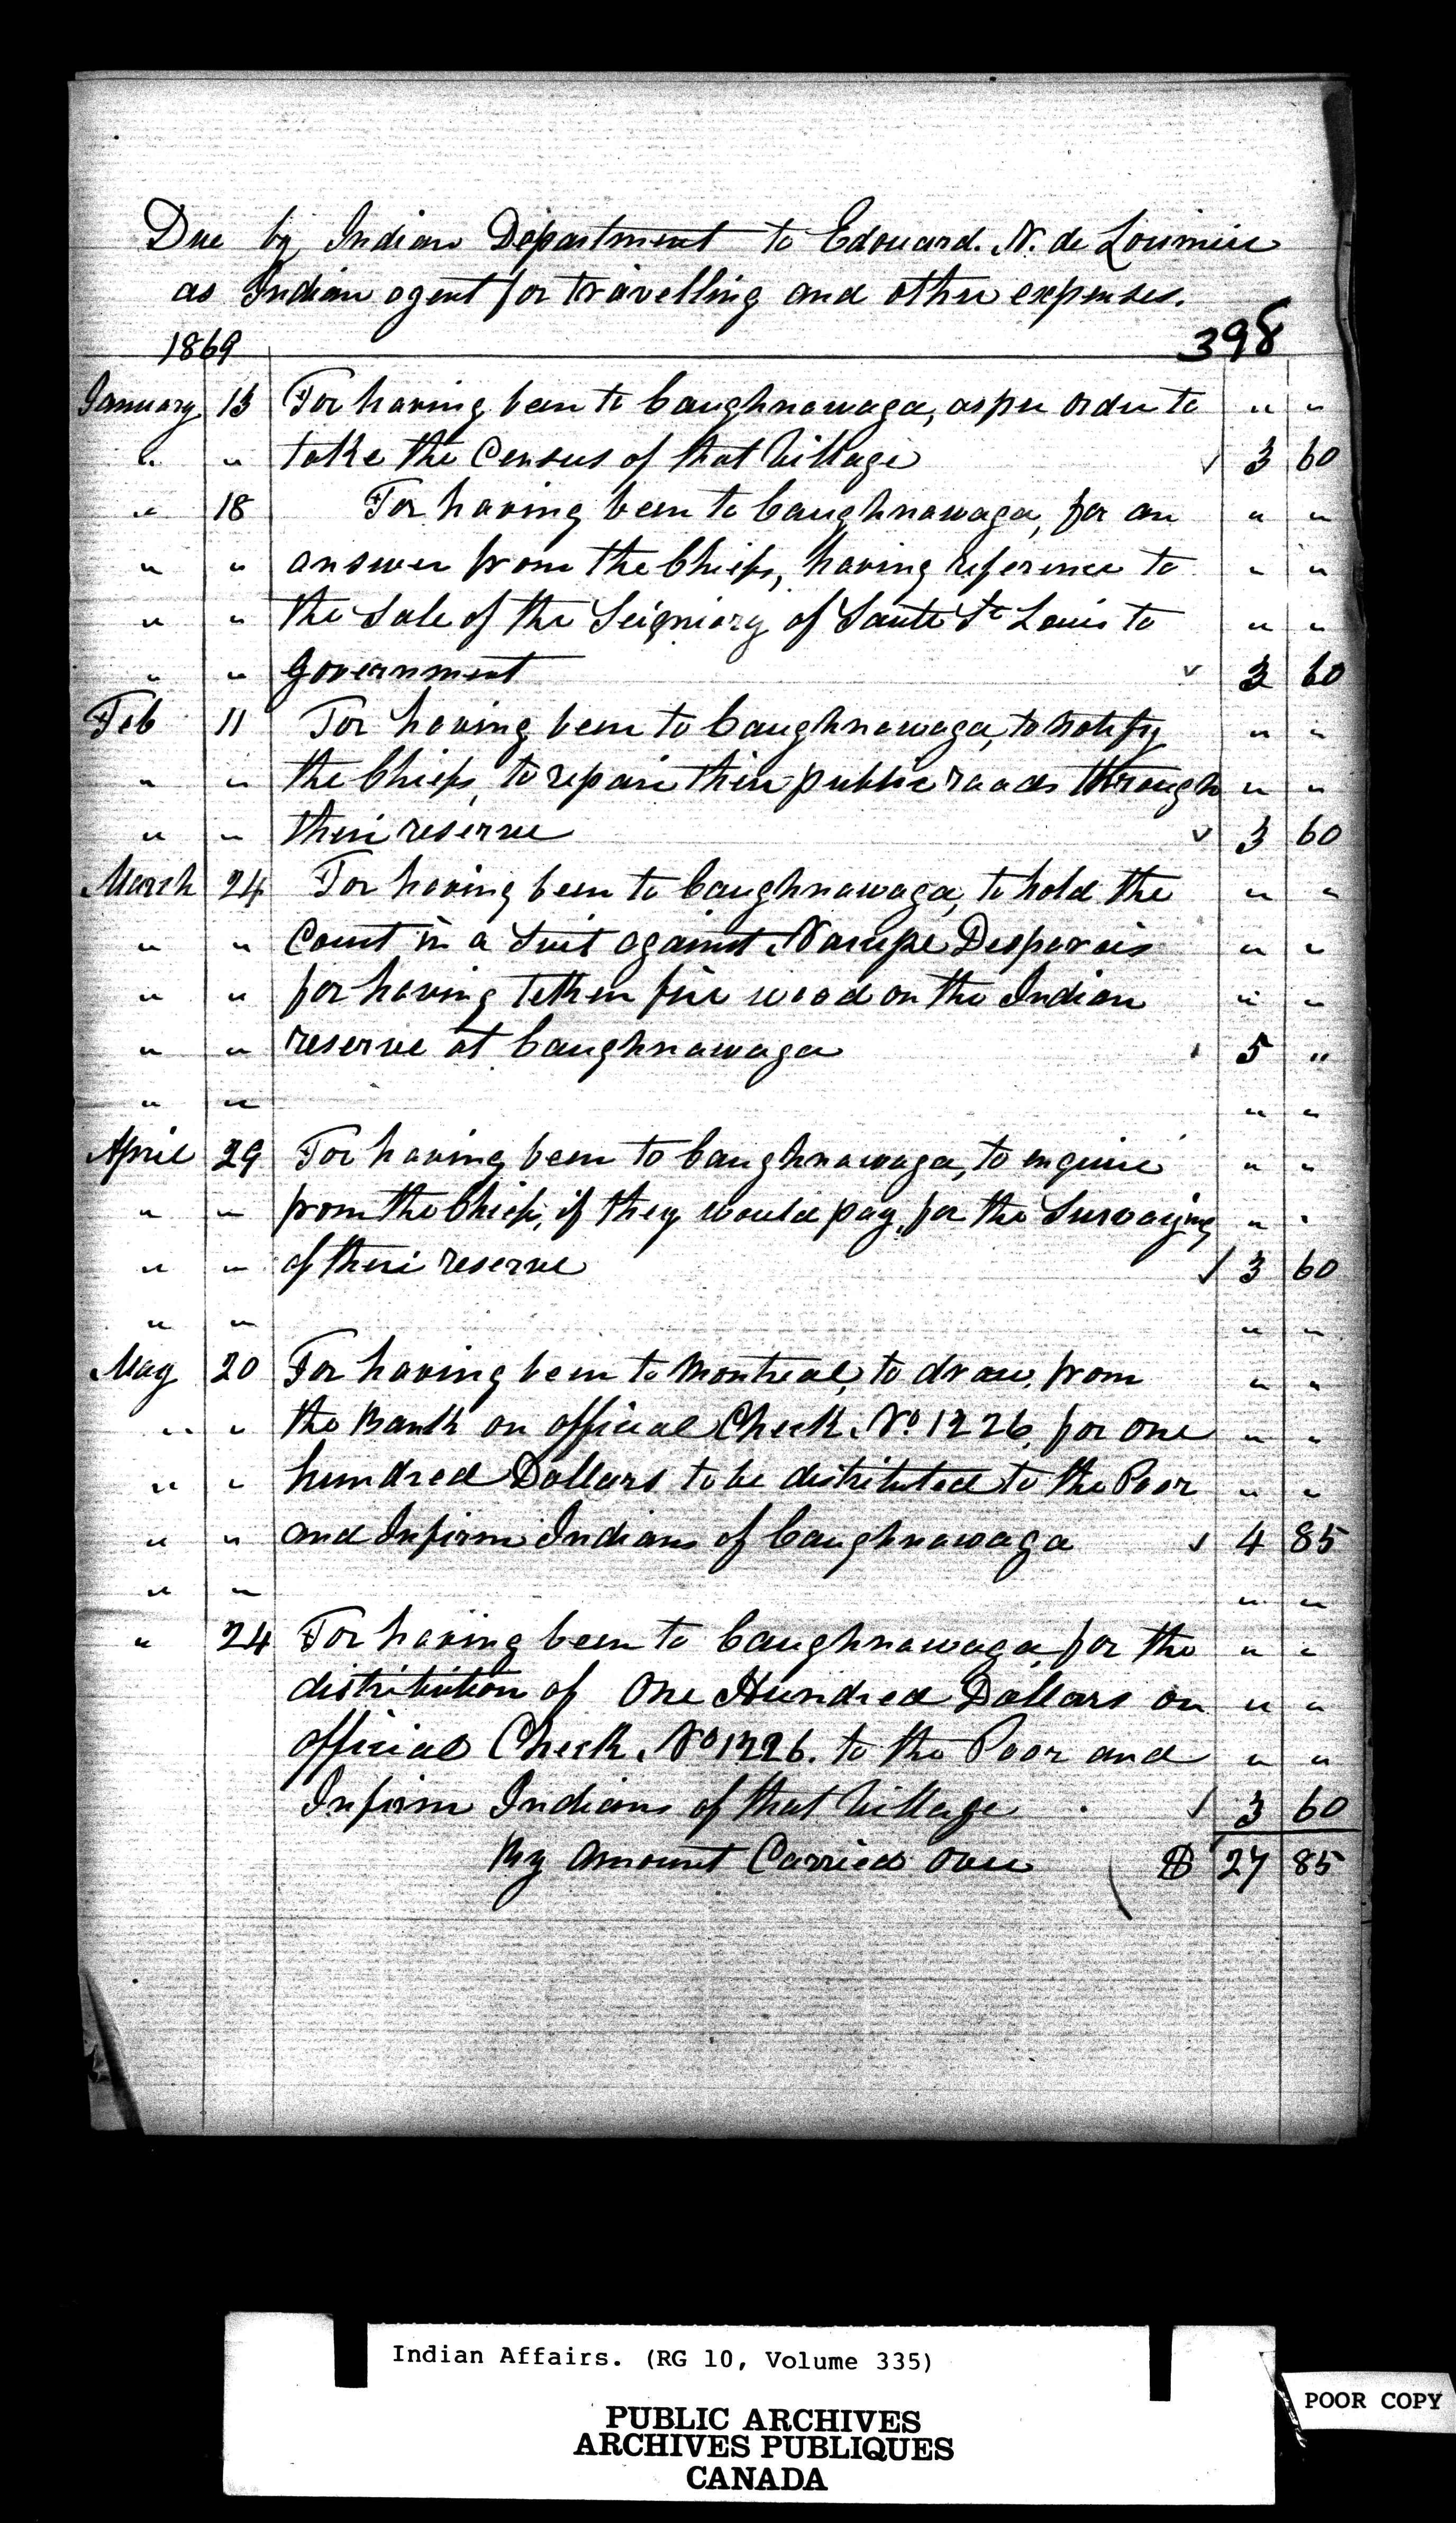 Due by Indian Department to Edouard. N. de Lorimier
as Indian agent for travelling and other expenses.
1869 398
January 13 For having been to Caughnawaga, as per order to " "
" " take the Census of that Village ✓ 3 60
" 18 For having been to Caughnawaga, for an " "
" " answer from the Chiefs, having reference to " "
" " the Sale of the Seigniory of Saute St Louis to " "
" " Government ✓ 3 60
Feb 11 For having been to Caughnawaga, to notify " "
" " the Chiefs, to repair their public roads through " "
" " their reserve ✓ 3 60
March 24 For having been to Caughnawaga, to hold the " "
" " Court in a Suit against Narcisse Desparois " "
" " for having teken fire wood on the Indian " "
" " reserve at Caughnawaga 5 "
" " " "
April 29 For having been to Caughnawaga, to enquire " "
" " from the Chiefs, if they would pay, for the Surveying " "
" " of their reserve ✓ 3 60
" " " "
May 20 For having been to Montreal, to draw, from " "
" " the Bank on official Check. No 1226, for one " "
" " hundred Dollars to be distributed to the Poor " "
" " and Infirm Indians of Caughnawaga ✓ 4 85
" " " "
" 24 For having been to Caughnawaga, for the " "
distribution of One Hundred Dollars on " "
official Check. No 1226. to the Poor and " "
Infirm Indians of that Village ✓ 3 60
By Amount Carried Over $ 27 85
Indian Affairs. (RG 10, Volume 335)
PUBLIC ARCHIVES
ARCHIVES PUBLIQUES
CANADA
POOR COPY